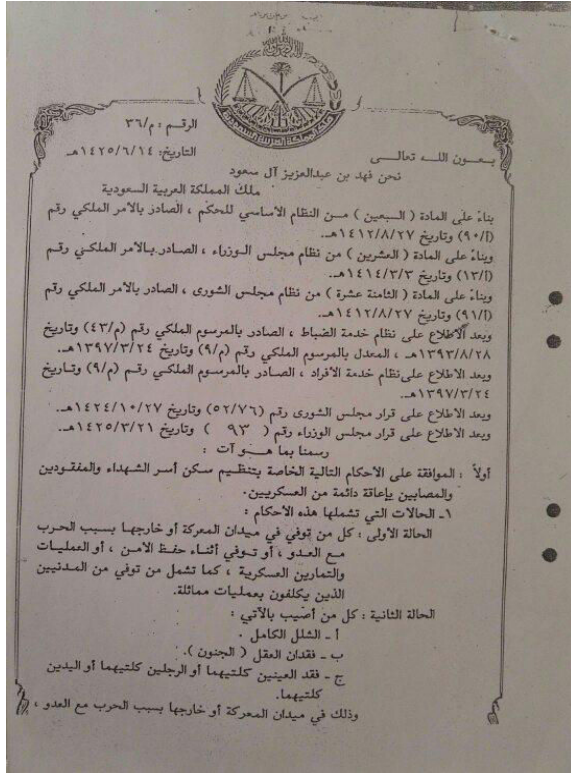 الرقم : م/٣٦
التاريخ: ١٤٢٥/٦/١٤هـ
بعون اللـه تعالى
نحن فهد بن عبدالعزيز آل سعود
ملك المملكة العربية السعودية
بناءً على المادة ( السبعين ) من النظام الاساسي للحكم ، الصادر بالامر الملكي رقم
(أ/٩٠) وتاريخ ١٤١٢/٨/٢٧هـ.
وبناءً على المادة ( العشرين ) من نظام مجلس الوزراء ، الصادر بالامر الملكي رقم
(أ/١٣) وتاريخ ١٤١٤/٣/٣هـ.
وبناءً على المادة ( الثامنة عشرة ) من نظام مجلس الشورى ، الصادر بالامر الملكي رقم
(أ/٩١) وتاريخ ١٤١٢/٨/٢٧هـ.
وبعد الاطلاع على نظام خدمة الضباط ، الصادر بالمرسوم الملكي رقم (م/٤٣) وتاريخ
١٣٩٣/٨/٢٨هـ ، المعدل بالمرسوم الملكي رقم (م/٩) وتاريخ ١٣٩٧/٣/٢٤هـ.
وبعد الاطلاع على نظام خدمة الأفراد ، الصادر بالمرسوم الملكي رقم (م/٩) وتاريخ
١٣٩٧/٣/٢٤هـ.
وبعد الاطلاع على قرار مجلس الشورى رقم (٥٢/٧٦) وتاريخ ١٤٢٤/١٠/٢٧هـ.
وبعد الاطلاع على قرار مجلس الوزراء رقم ( ٩٣ ) وتاريخ ١٤٢٥/٣/٢١هـ.
رسمنا بما هـو آت :
أولاً : الموافقة على الاحكام التالية الخاصة بتنظيم سكن أسر الشهداء والمفقودين
والمصابين بإعاقة دائمة من العسكريين.
١ـ الحالات التي تشملها هذه الأحكام :
الحالة الاولى : كل من توفي في ميدان المعركة أو خارجها بسبب الحرب
مع العدو ، أو توفي أثناء حفظ الأمن ، أو العمليات
والتمارين العسكرية ، كما تشمل من توفي من المدنيين
الذين يكلفون بعمليات مماثلة.
الحالة الثانية : كل من أصيب بالآتي :
أ ـ الشلل الكامل .
ب ـ فقدان العقل ( الجنون ).
ج ـ فقد العينين كلتيهما أو الرجلين كلتيهما أو اليدين
كلتيهما.
وذلك في ميدان المعركة أو خارجها بسبب الحرب مع العدو ،